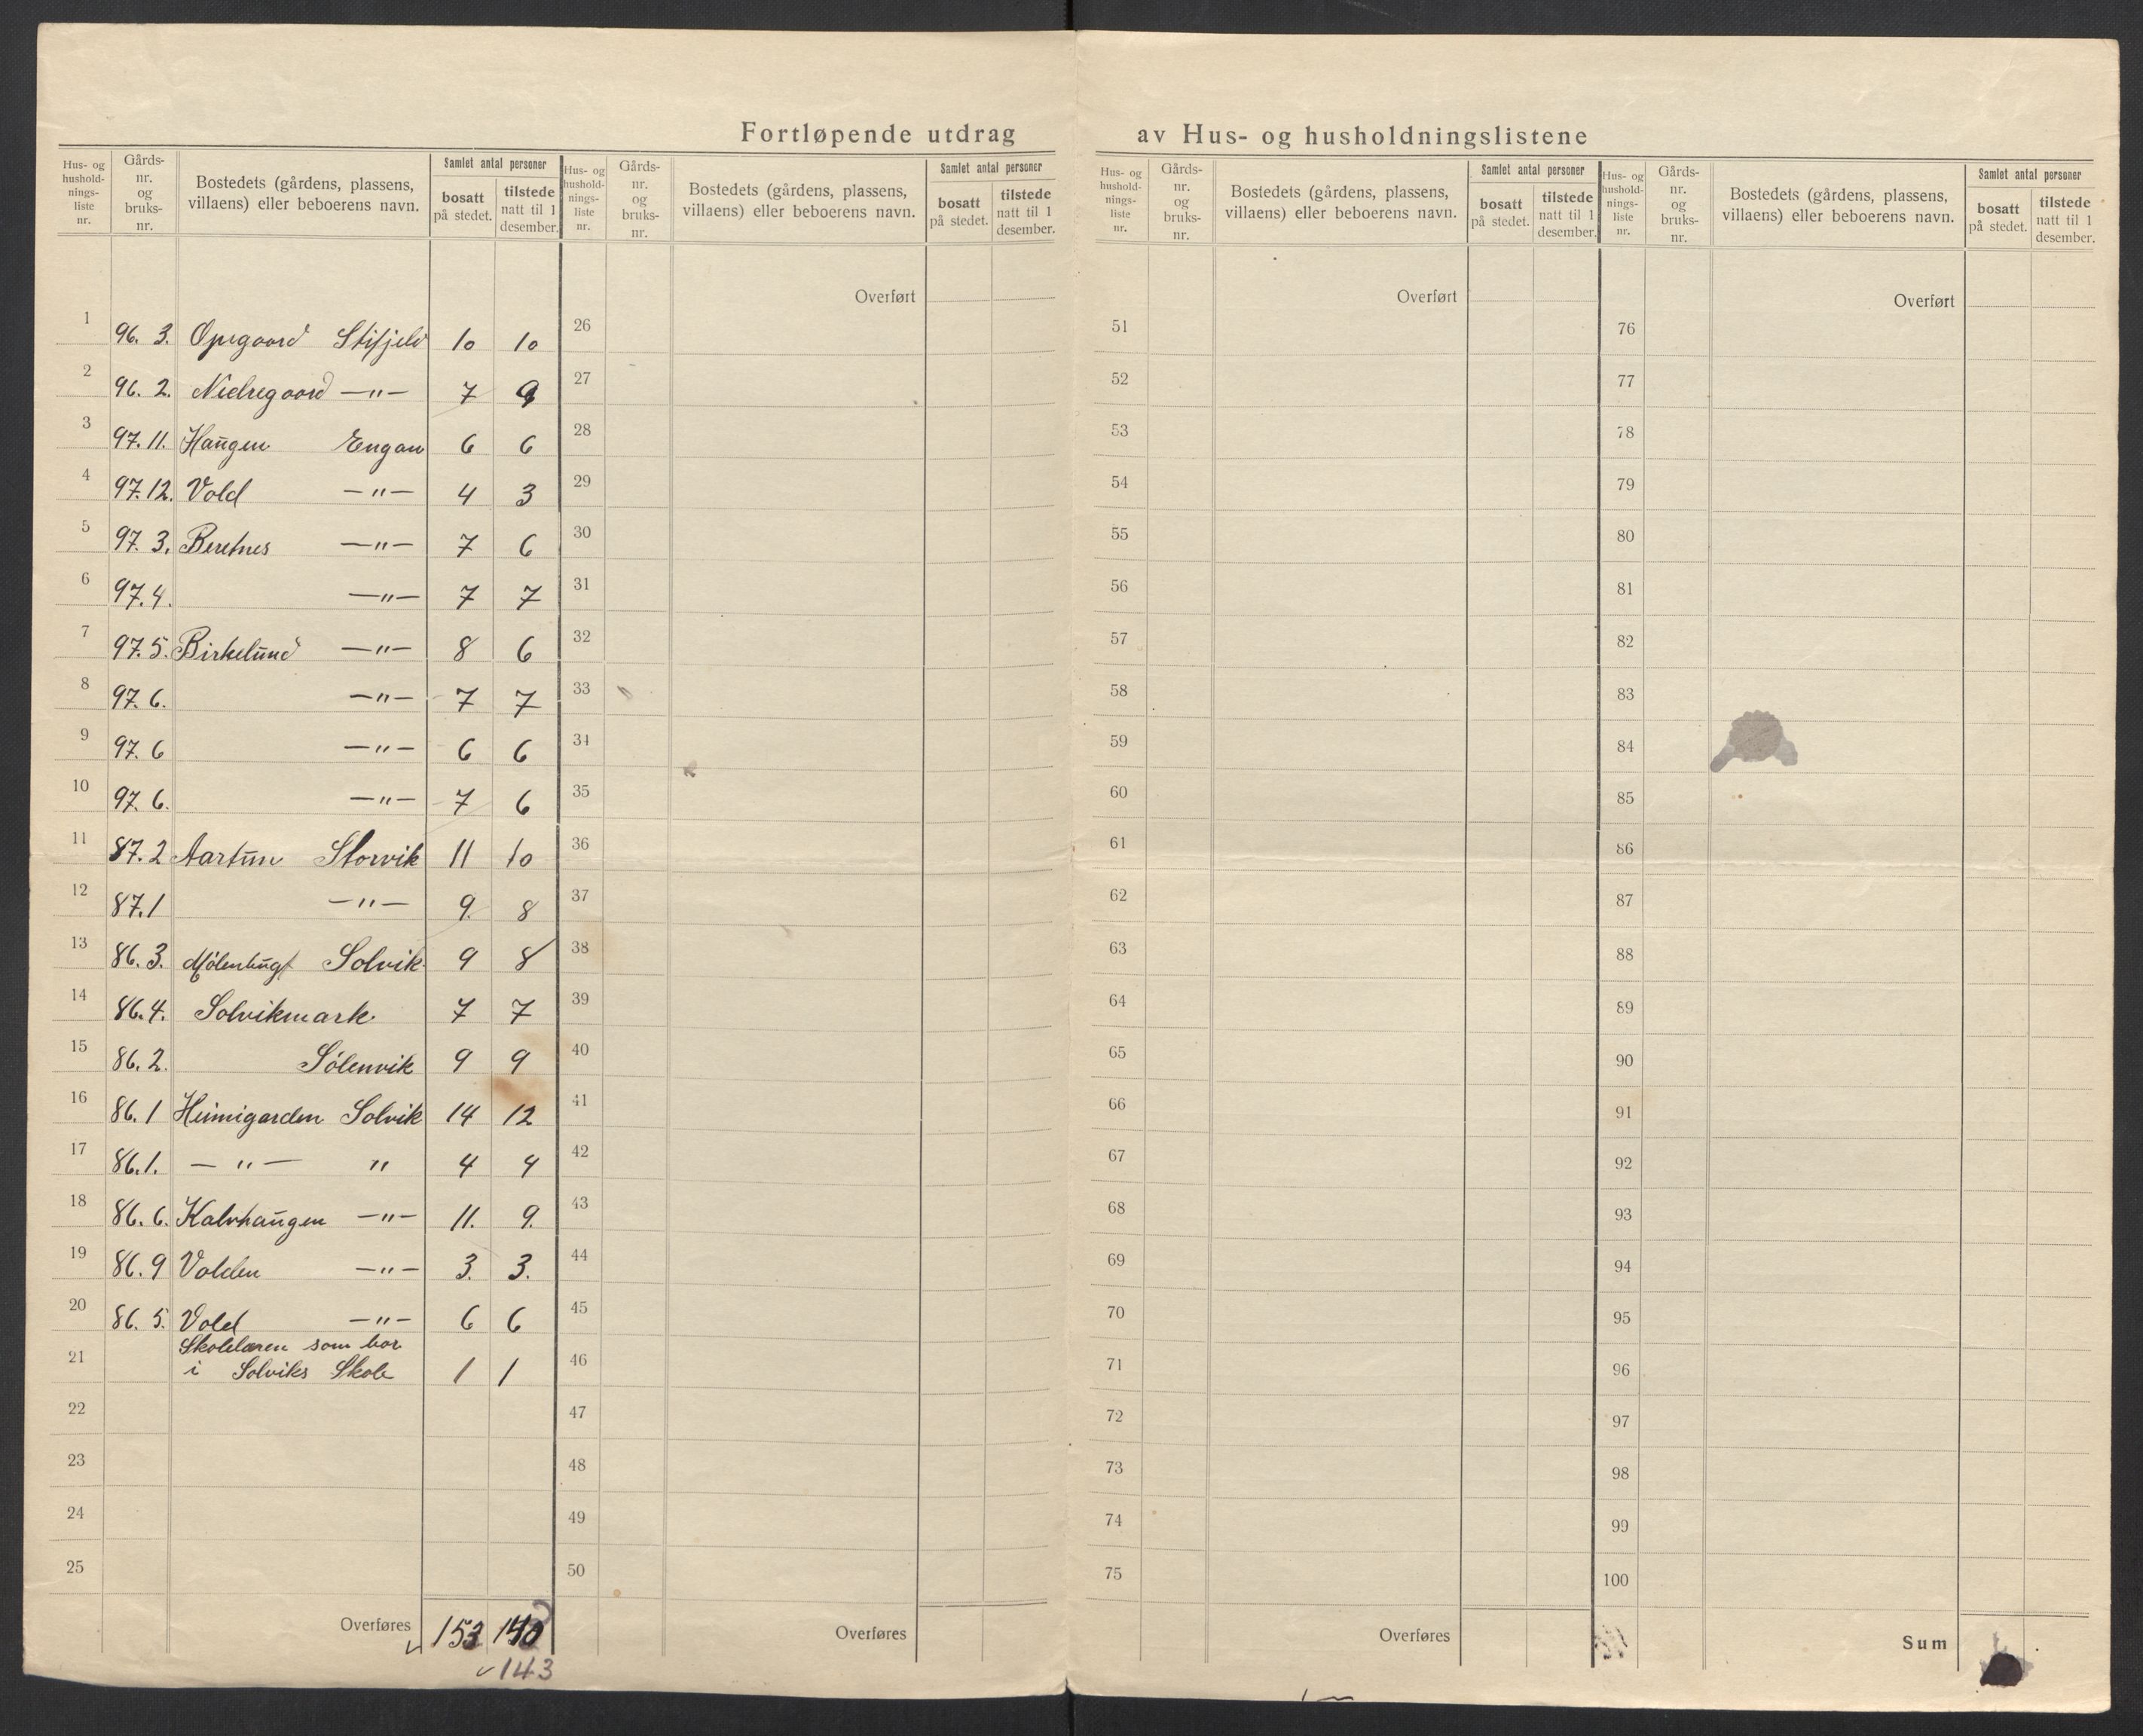 Fortløpende utdrag av Hus- og husholdningslistene
Hus- og husholdnings-liste nr. Gårds-nr. og bruks-nr. Bostedets (gårdens, plassens, villaens) eller beboerens navn. Samlet antal personer bosatt på stedet. tilstede natt til 1 desember.
1 96. 3. Opegaard Stifjeld 10 10
2 96. 2. Nielsegaard —"— 7 9
3 97. 11. Haugen Engan 6 6
4 97. 12. Vold —"— 4 3
5 97. 3. —"— 7 6
6 97. 4. —"— 7 7
7 97. 5. Birkelund —"— 8 6
8 97. 6. —"— 7 7
9 97. 6 —"— 6 6
10 97. 6. —"— 7 6
11 87. 2 Aartun Storvik 11 10
12 87. 1 —"— 9. 8
13 86. 3. Solvik. 9 8
14 86. 4. Solvikmark. 7 7
15 86. 2. Sølenvik 9 9
16 86. 1 Heimigarden Solvik 14 12
17 86. 1. —"— " 4 4
18 86. 6. Kalvhaugen —"— 11. 9.
19 86. 9 Volden —"— 3. 3.
20 86. 5. Vold —"— 6 6
Skolelæren som bor
21 i Solviks Skole 1 1
22
23
24
25
Overføres 153
143
Hus- og husholdnings-liste nr. Gårds-nr. og bruks-nr. Bostedets (gårdens, plassens, villaens) eller beboerens navn. Samlet antal personer bosatt på stedet. tilstede natt til 1 desember.
Overført
26
27
28
29
30
31
32
33
34
35
36
37
38
39
40
41
42
43
44
45
46
47
48
49
50
Overføres
Hus- og husholdnings-liste nr. Gårds-nr. og bruks-nr. Bostedets (gårdens, plassens, villaens) eller beboerens navn. Samlet antal personer bosatt på stedet. tilstede natt til 1 desember.
Overført
51
52
53
54
55
56
57
58
59
60
61
62
63
64
65
66
67
68
69
70
71
72
73
74
75
Overføres
Hus- og husholdnings-liste nr. Gårds-nr. og bruks-nr. Bostedets (gårdens, plassens, villaens) eller beboerens navn. Samlet antal personer bosatt på stedet. tilstede natt til 1 desember.
Overført
76
77
78
79
80
81
82
83
84
85
86
87
88
89
90
91
92
93
94
95
96
97
98
99
100
Sum